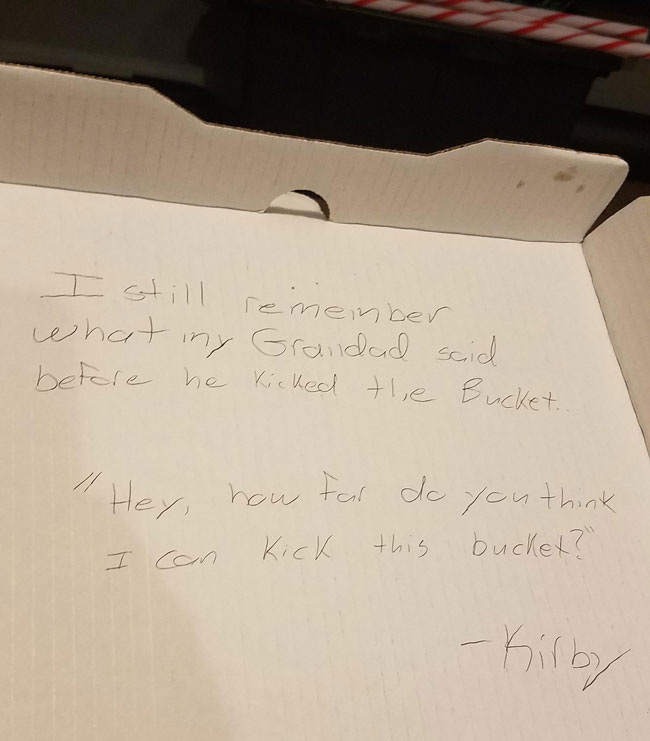 I still remember
what my Grandad said
before he kicked the Bucket..
"Hey, how far do you think
I can kick this bucket?"
- Kirby